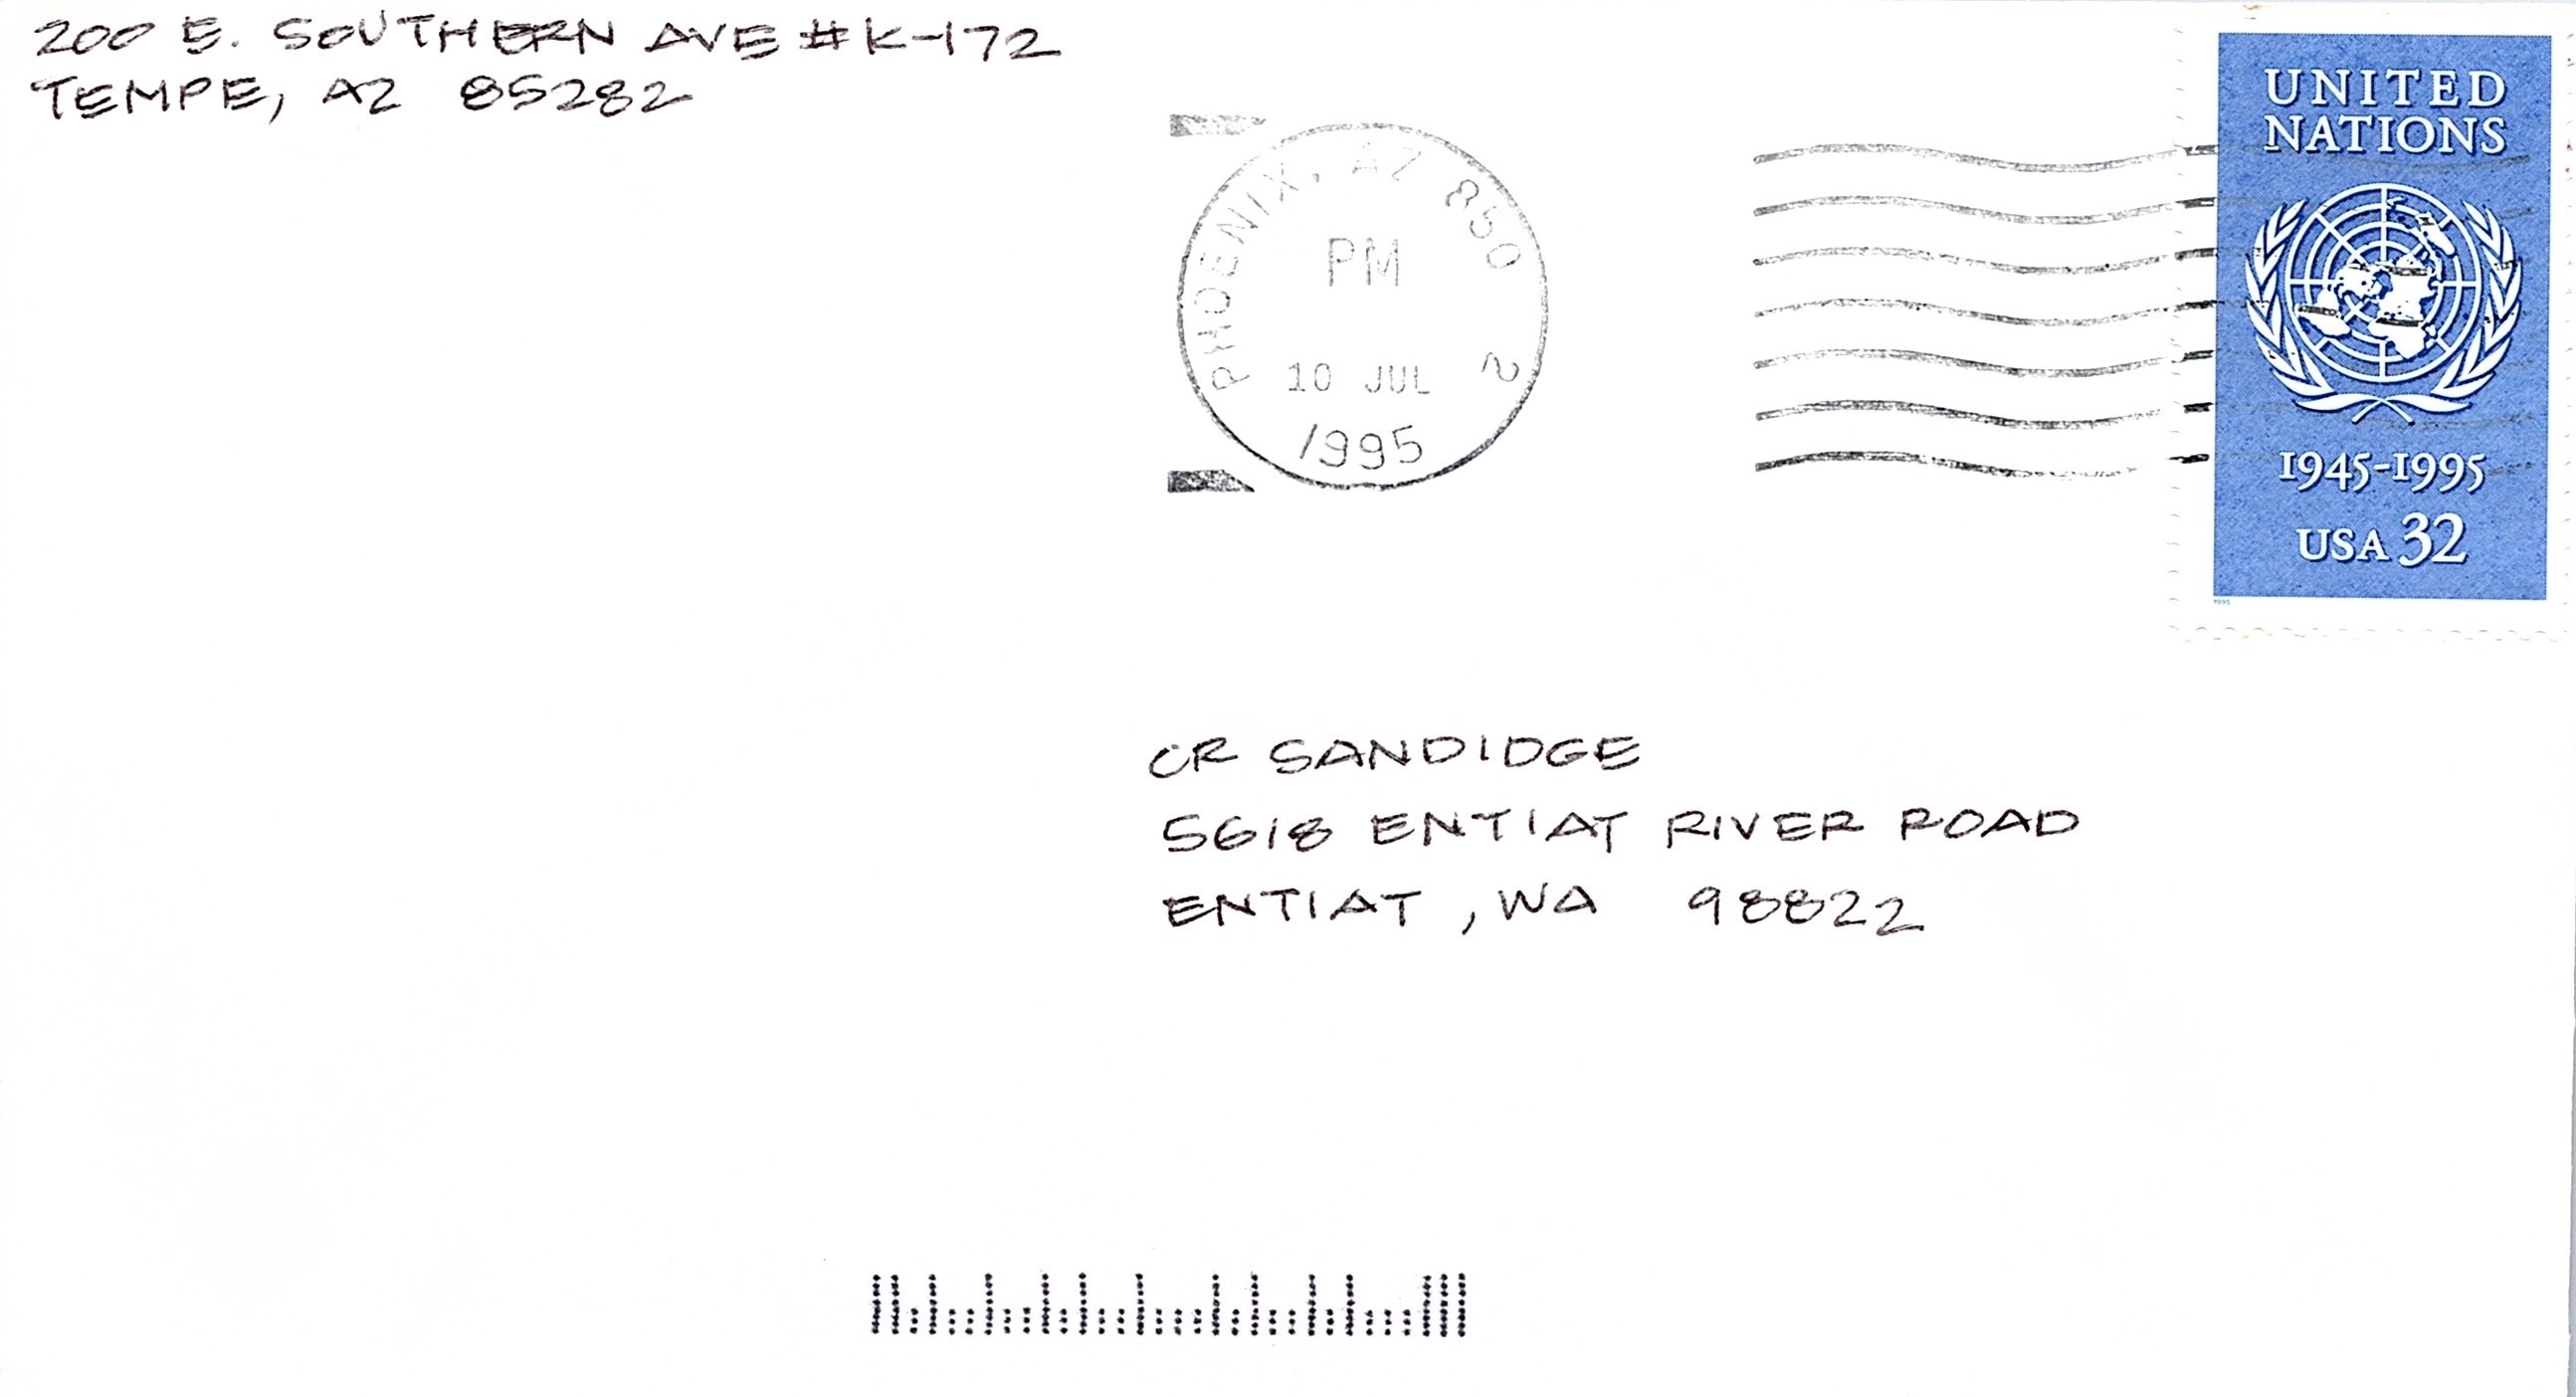 200 E. SOUTHERN AVE #K-172
TEMPE, AZ 85282
PHOENIX, AZ 850 2
PM
10 JUL
1995
UNITED
NATIONS
1945-1995
USA 32
1995
CR SANDIDGE
5618 ENTIAT RIVER ROAD
ENTIAT, WA 98822